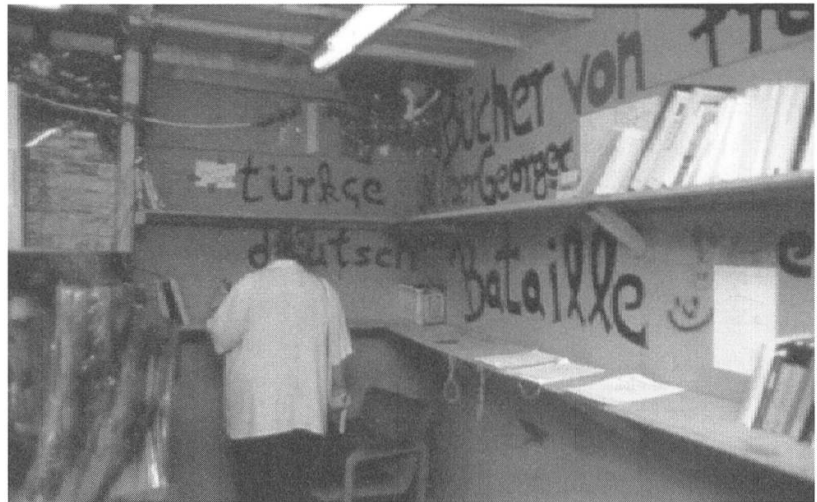 türkçe
deutsch
Bücher von
Georges
Bataille